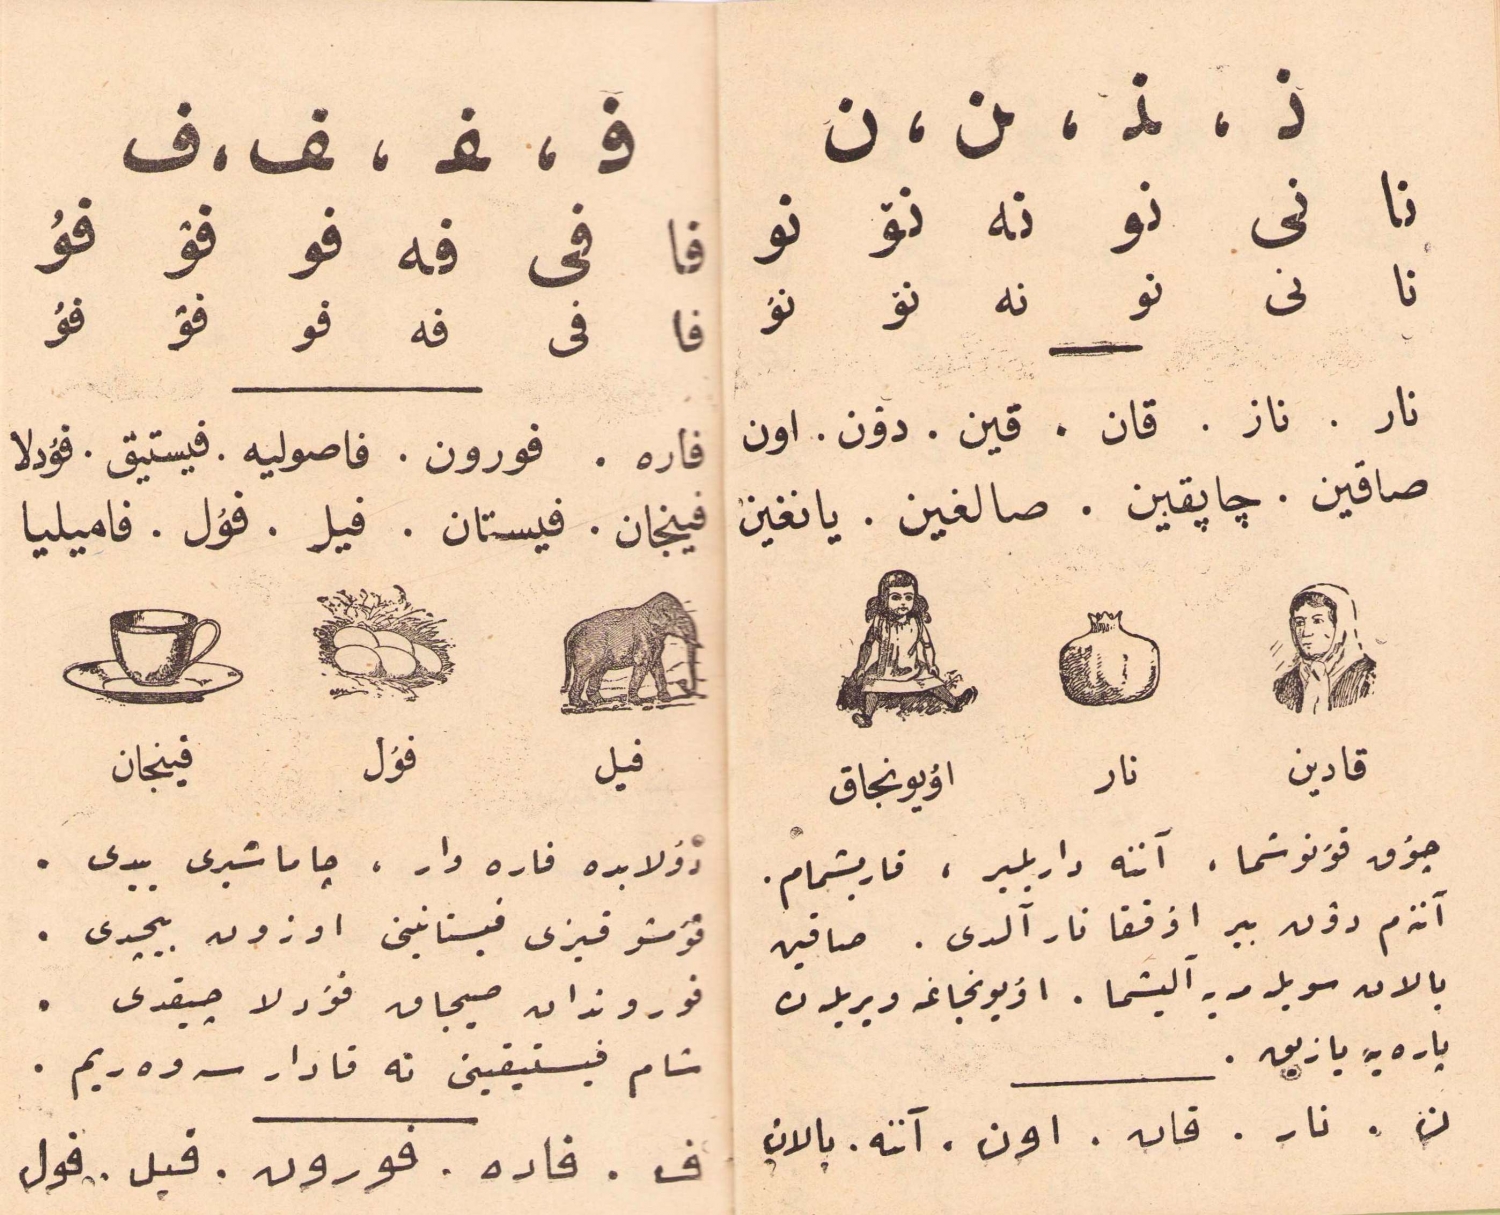 ن ، ن ، ن ، ن
نا نی نو نه نۆ نو
نا نی نو نه نۆ نوُ
نار . ناز . قان . قین . دۆن . اون
صاقین . چاپقین . صالغین . یانغین
قادین نار اوُیونجاق
چوُق قوُنوشما ، آننه داریلیر ، قاریشمام .
آننه‌م دۆن بیر اۆققا نار آلدی . صاقین
یالان سویله‌مه‌یه آلیشما . اوُیونجاغه ویریله‌ن
پاره‌یه یازیق .
ن . نار . قان . اون . آننه . یالان
ف ، ف ، ف ، ف
فا فی فه فو فۆ فوُ
فا فی فه فو فۆ فوُ
فاره . فورون . فاصولیه . فیستیق . فوُدلا
فینجان . فیستان . فیل . فوُل . فامیلیا
فیل فوُل فینجان
دوُلابده فاره وار ، چاماشیری ییدی .
قوُمشو قیزی فیستانینی اوزون بیچدی .
فوروندان صیجاق فوُدلا چیقدی .
شام فیستیقینی نه قادار سه‌وه‌ریم .
ف . فاره . فورون . فیل . فول